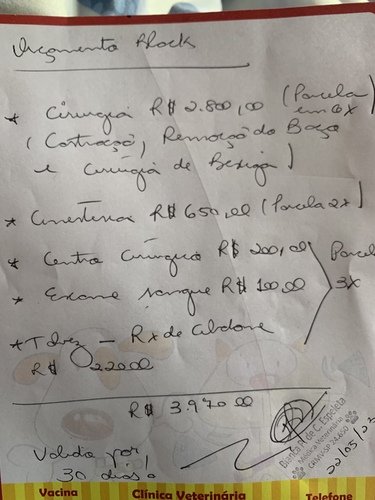 Orçamento Block
* Cirurgia R$ 2.800,00 (Parcela em 6x)
(Castração, Remoção do Baço
e Cirurgia de Bexiga)
* Anestesia R$ 650,00 (Parcela 2x)
* Centro Cirúrgico R$ 200,00
* Exame sangue R$ 100,00
Parcela 3x
* Talvez - Rx de Abdome
R$ 220,00
R$ 3.970,00
Valido por
30 dias
Médica Veterinária
22/05/23
Vacina Clínica Veterinária Telefone